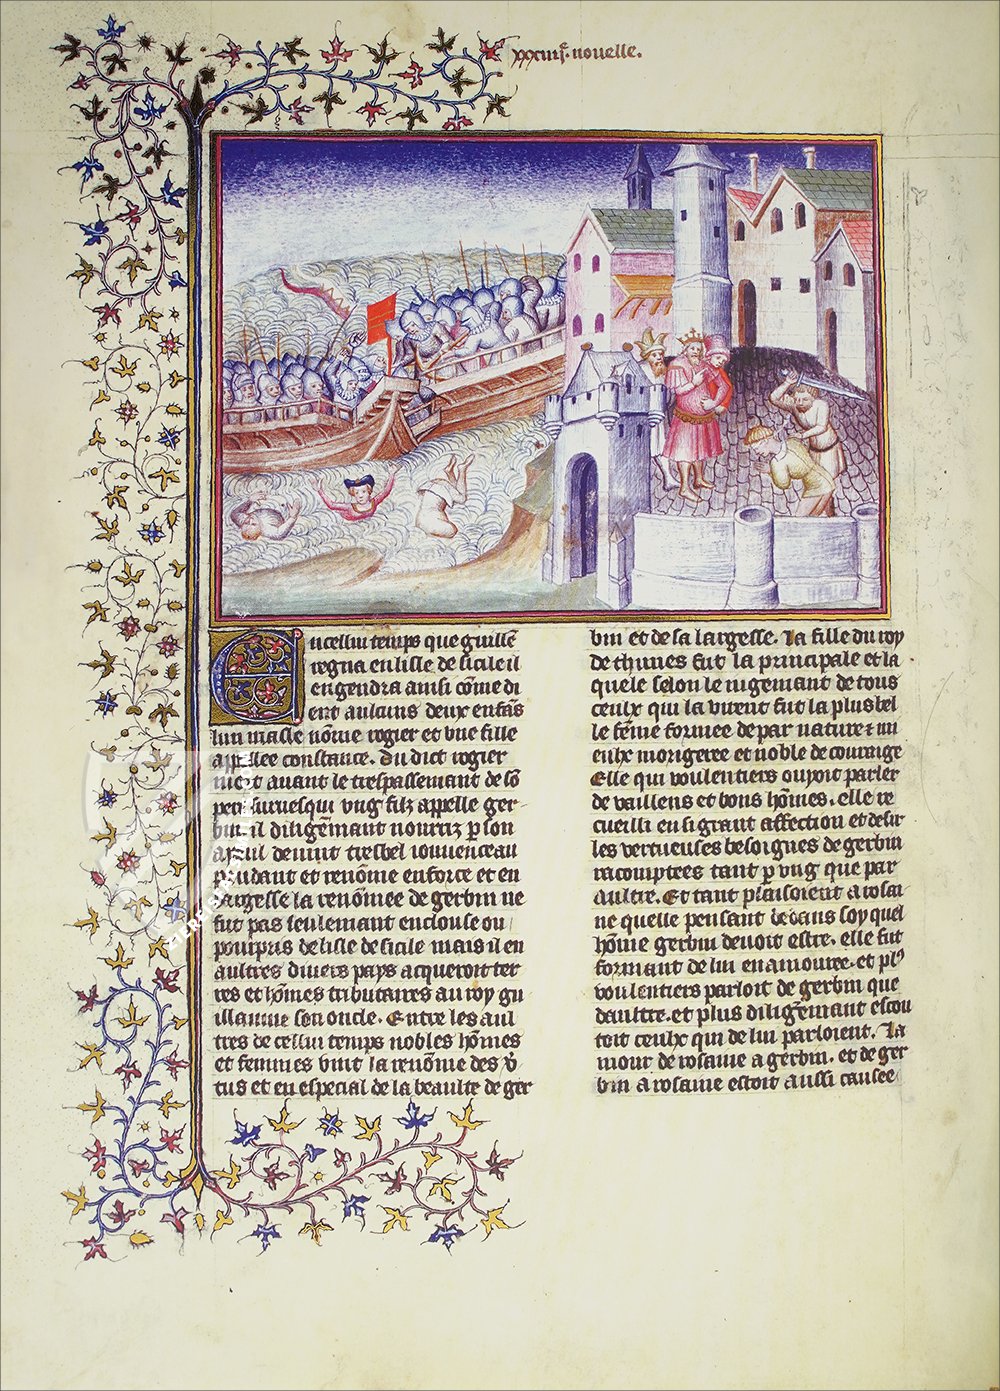 xxxiiij.e nouelle.
En cellui temps que guillē
regna en lisle de sicile il
engendra ainsi cōme di
ent aulcuns deux enfās
lun masle nōme rogier et vne fille
appellee constance. Du dict rogier
mort auant le trespassement de sō
pere suruesqui vng filz appelle ger-
bin. il diligēmant nourriz p son
ayeul deuint tresbel iouuenceau
et renōme en force et en
largesse la renōmee de gerbin ne
fut pas seulemant enclouse ou
pourpris de lisle de sicile mais il en
aultres diuers pays acqueroit ter
res et hōmes tributaires au roy gu
illaume son oncle. Entre les aul
tres de cellui temps nobles hōmes
et femmes vint la renōme des v̾
tus et en especial de la beaulte de ger
bin et de sa largesse. La fille du roy
de thunes fut la principale et la
quele selon le iugemant de tous
ceulx qui la virent fut la plus bel
le fēme formee de par nature et mi
eulx morigeree et noble de couraige
Elle qui voulentiers ouyoit parler
de vaillens et bons hōmes. elle re
cueilli en si grant affection et desir
les vertueuses besoignes de gerbin
racomptees tant p vng que par
aultre. Et tant plaisoient a rosai
ne quelle pensant dedans soy quel
hōme gerbin deuoit estre. elle fut
formant de lui enamouree. et pl᾽
voulentiers parloit de gerbin que
daultre. et plus diligēmant escou
toit ceulx qui de lui parloient. La
mour de rosaine a gerbin. et de ger
bin a rosaine estoit aussi causee